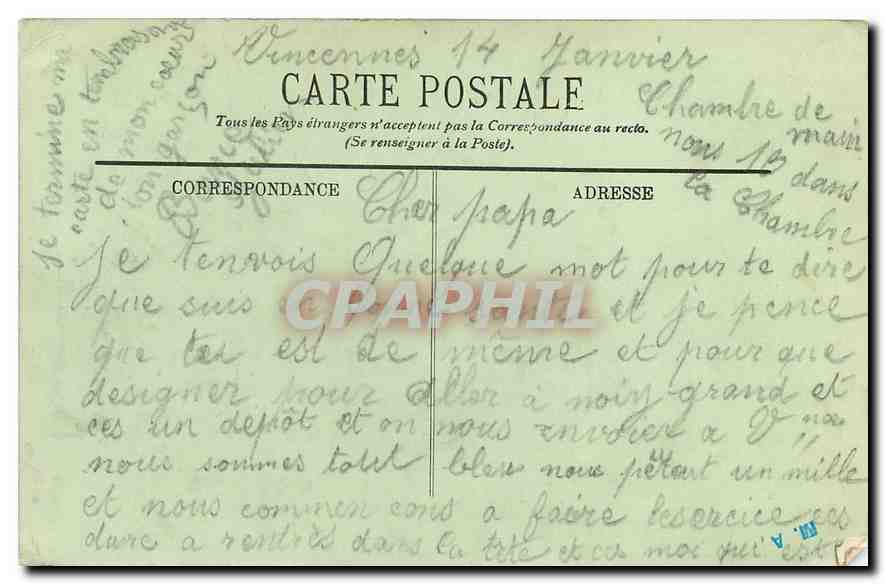 Vincennes 14 Janvier
CARTE POSTALE
Tous les Pays étrangers n'acceptent pas la Correspondance au recto.
(Se renseigner à la Poste).
CORRESPONDANCE
ADRESSE
Chambre de
main
nous 19 dans
la Chambre
Cher papa
Je tenvois Quelque mot pour te dire
que suis en bonne santé et je pence
que toi est de même et pour que
designer pour aller à noisy-grand et
ces un depôt et on nous envoier a V
nous sommes tout bleu nous un mille
et nous commen cons a faire lesercice ces
dure a rentrès dans la tete et ces moi qui est
Je termine ma
carte en tembrasan
de mon cœur
ton garçon
CPAPHIL
M. A